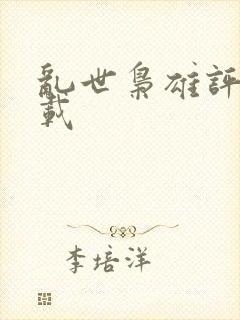 亂世梟雄評
載
李培洋